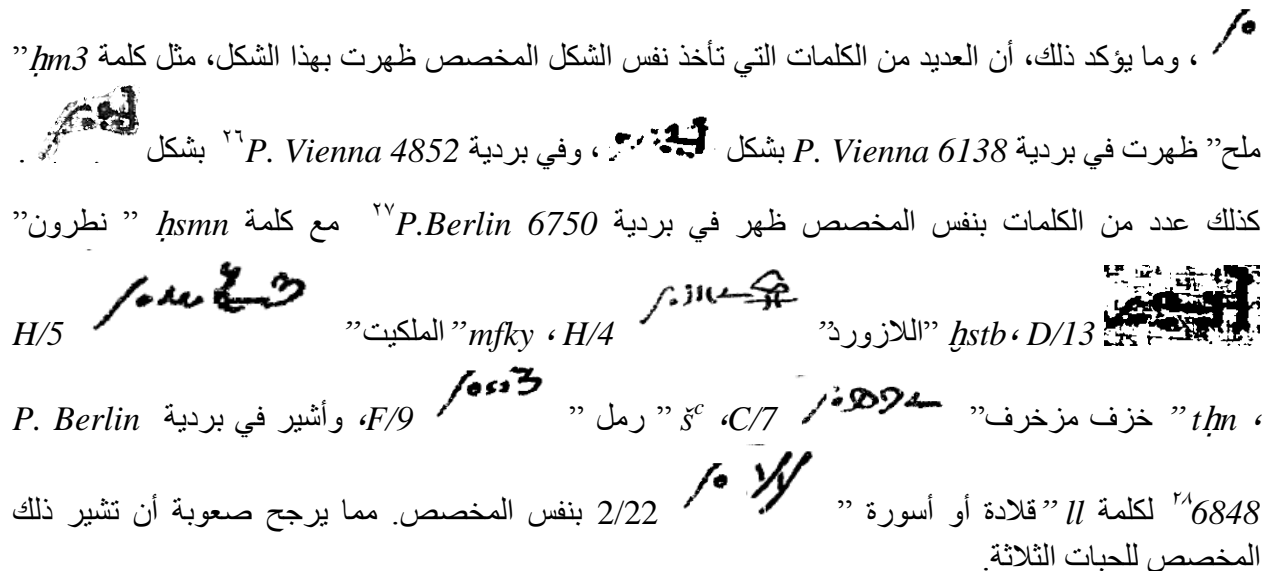 ، وما يؤكد ذلك، أن العديد من الكلمات التي تأخذ نفس الشكل المخصص ظهرت بهذا الشكل، مثل كلمة ḥm3 ”
ملح” ظهرت في بردية P. Vienna 6138 بشكل ، وفي بردية P. Vienna 4852 ٢٦ بشكل .
كذلك عدد من الكلمات بنفس المخصص ظهر في بردية P.Berlin 6750 ٢٧ مع كلمة ḥsmn ” نطرون”
D/13 ، ḫstb ”اللازورد” H/4 ، mfky ”الملكيت” H/5
، tḥn ” خزف مزخرف” C/7، šᶜ ” رمل ” F/9، وأشير في بردية P. Berlin
6848 ٢٨ لكلمة ll ”قلادة أو أسورة ” 2/22 بنفس المخصص. مما يرجح صعوبة أن تشير ذلك
المخصص للحبات الثلاثة.